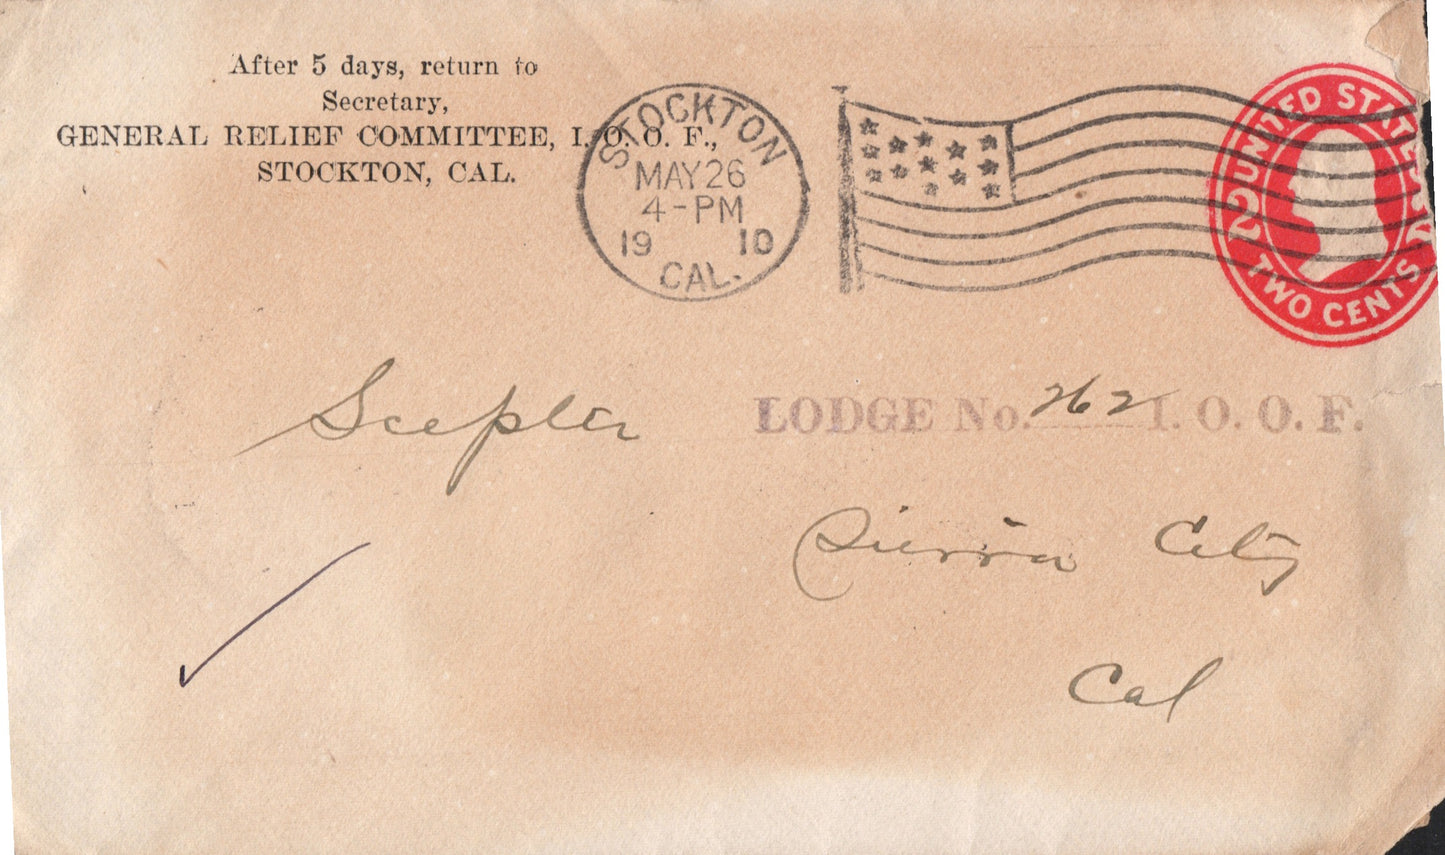 After 5 days, return to
Secretary,
GENERAL RELIEF COMMITTEE, I. O. O. F.,
STOCKTON, CAL.
STOCKTON
MAY 26
4-PM
19 10
CAL.
UNITED STATES
2 2
TWO CENTS
Scepter LODGE No. 262 I. O. O. F.
Sierra City
Cal